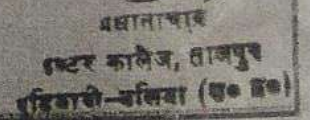 प्रधानाचार्य
इण्टर कालेज, ताजपुर
बलिया (उ० प्र०)